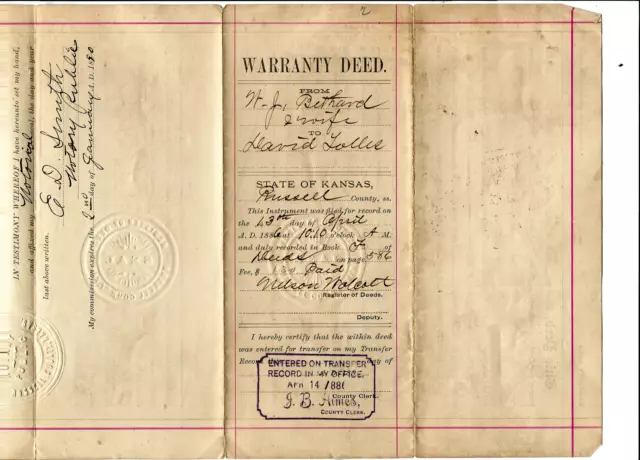 2
IN TESTIMONY WHEREOF I have hereunto set my hand,
and affixed my Notorial the day and year
last above written.
E. D. Smith
Notary Public
My commission expires the 2nd day of January A. D. 1890
WARRANTY DEED.
FROM
W. J. Bethard
& wife
TO
David Tolles
STATE OF KANSAS,
Russell County, ss.
This Instrument was filed for record on
the day of April
A. D. 1886 at 10:10 o'clock A M.
and duly recorded in Book of
Deeds on page 586
Fee, $ Paid
Nelson Wolcott
Register of Deeds.
Deputy.
I hereby certify that the within deed
was entered for transfer on my Transfer
Record day of
ENTERED ON TRANSFER
RECORD IN MY OFFICE.
APR 14 1886
County Clerk.
J. B. Himes,
COUNTY CLERK.